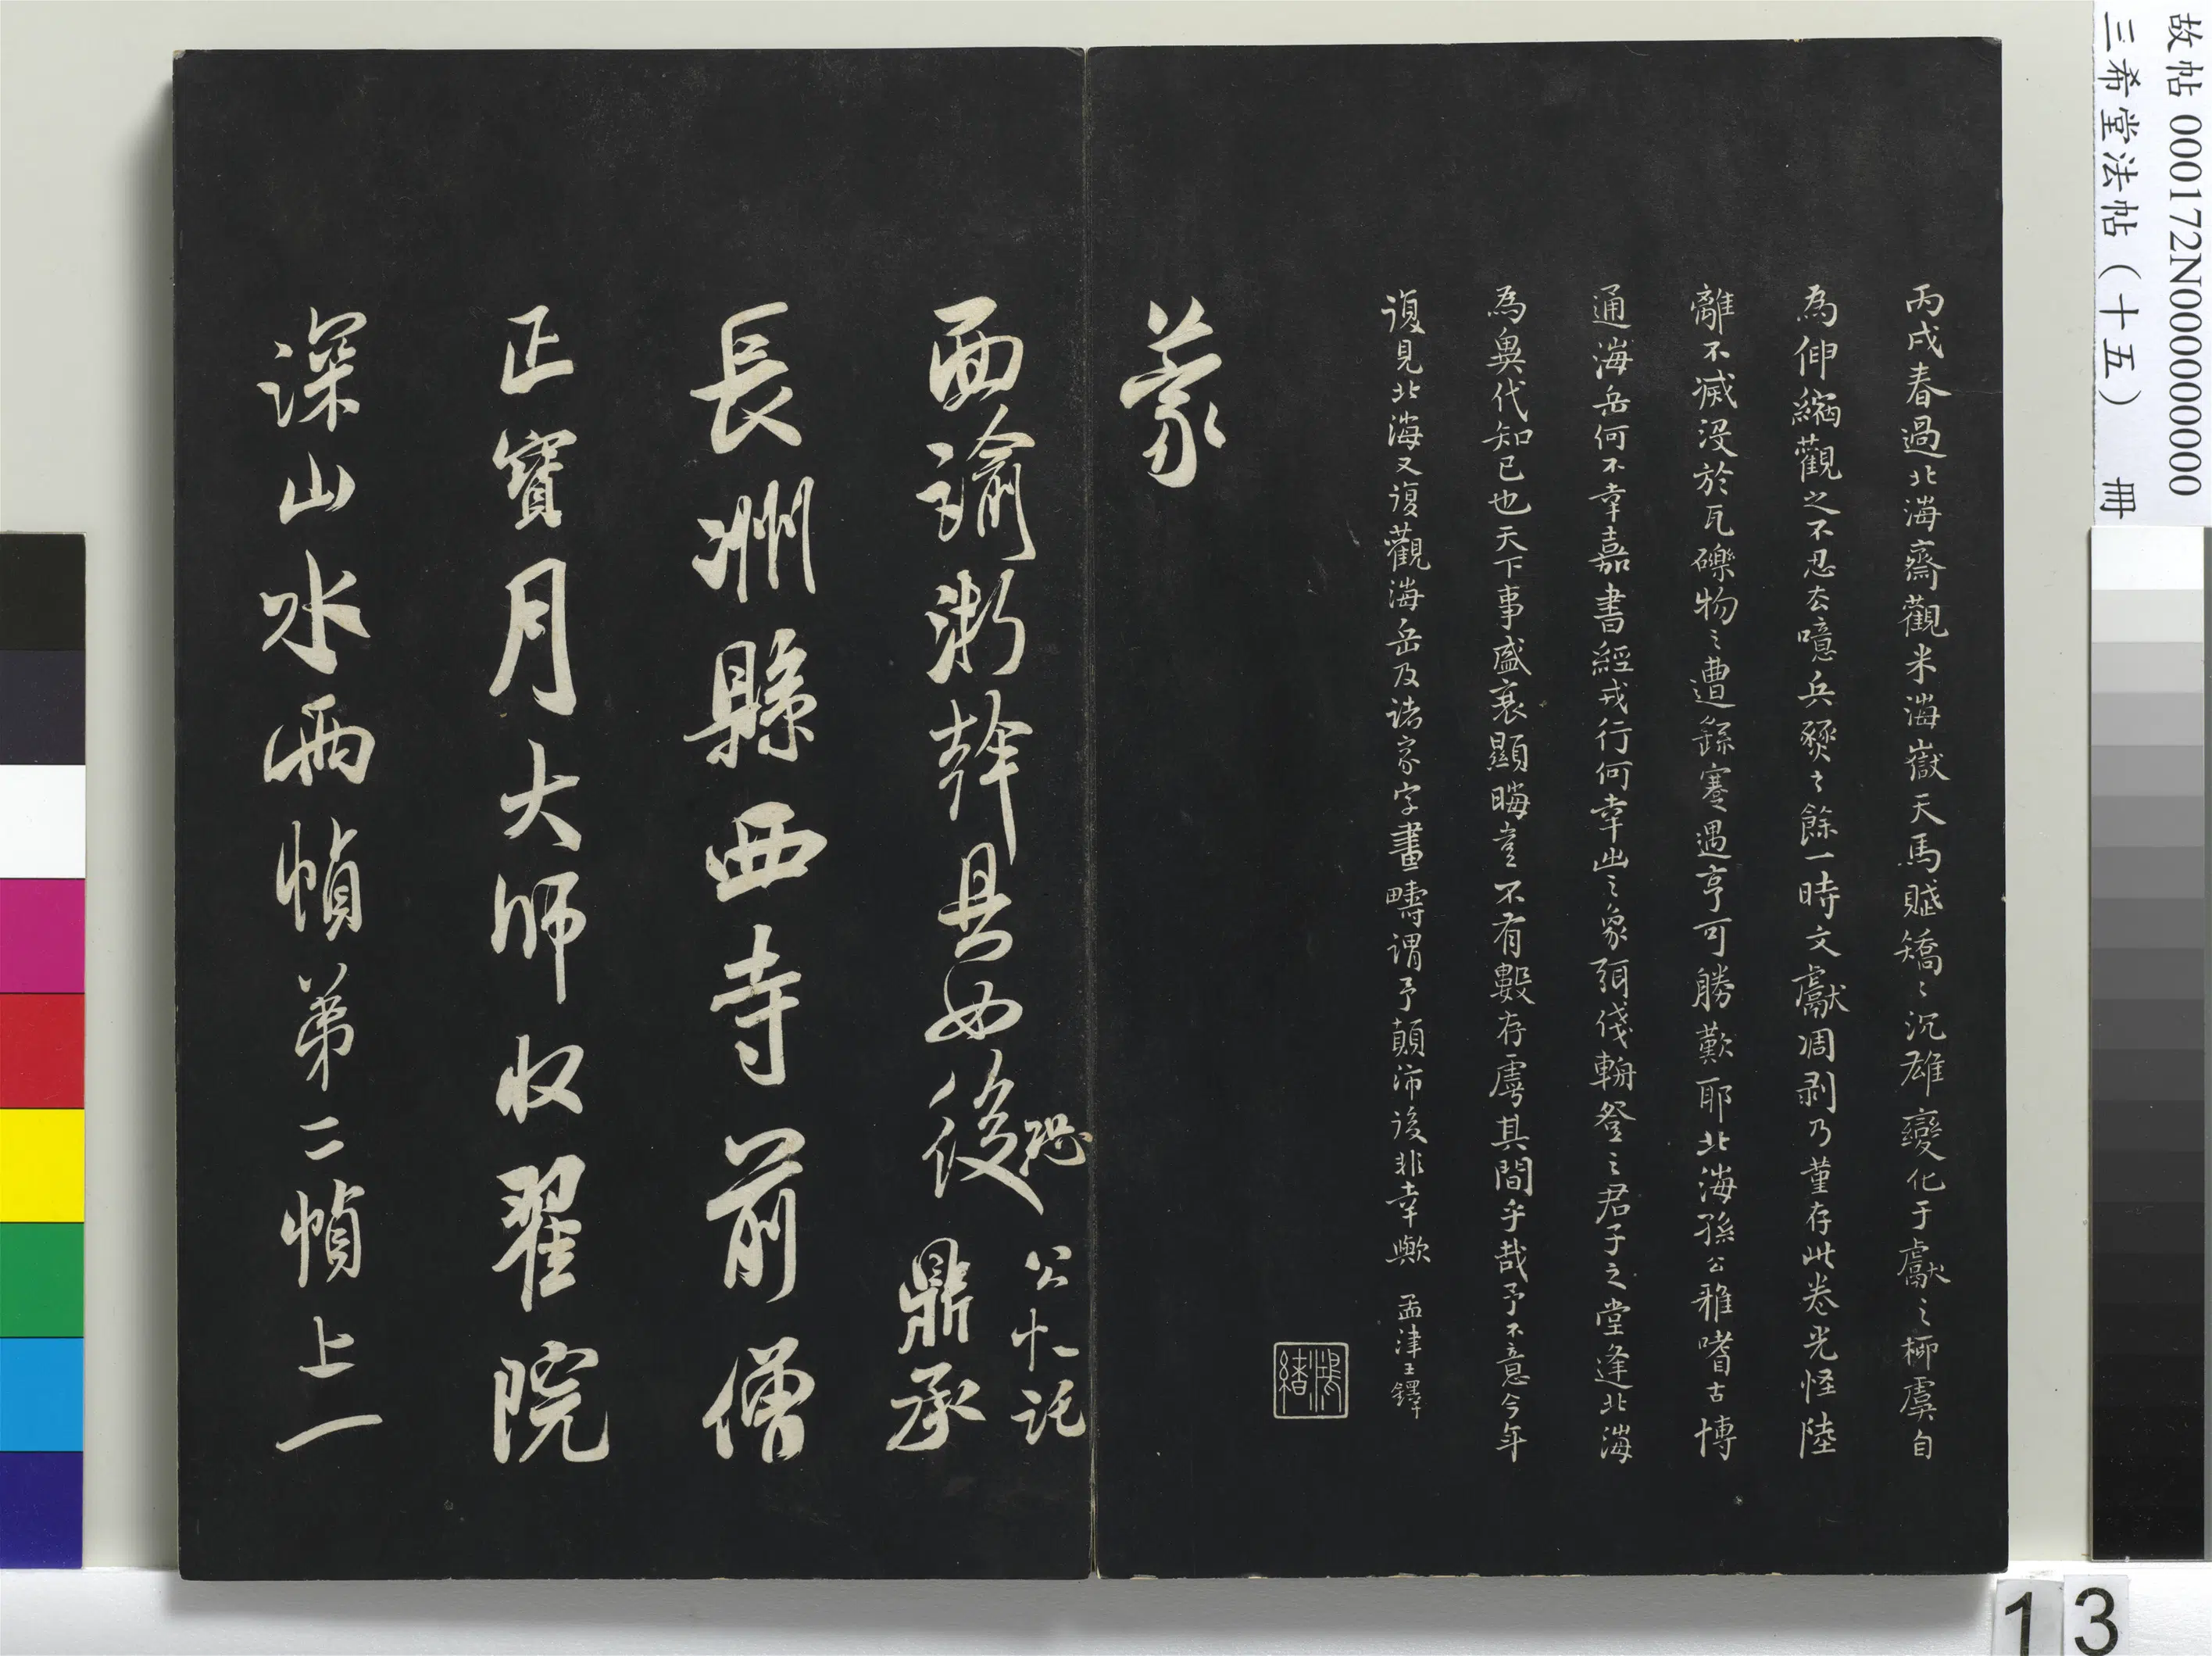 故帖 000172N000000000
三希堂法帖（十五） 冊
丙戌春過北海齋觀米海嶽天馬賦矯〻沉雄變化于獻之柳虞自
為伸縮觀之不忍去噫兵燹之餘一時文獻凋剥乃堇存此卷光怪陸
離不滅没於瓦礫物〻遭繇蹇遇亨可勝歎耶北海孫公雅嗜古博
通海岳何不幸嘉書經戎行何幸出之象弭伐輈登之君子之堂逢北海
為異代知已也天下事盛衰顯晦豈不有數存虖其間乎哉予不意今年
復見北海又復觀海岳及諸家字畫疇謂予顛沛後非幸歟 孟津王鐸
蒙
面諭浙幹具如後 恐公忙託
鼎承
長洲縣西寺前僧
正寶月大師收翟院
深山水兩幀第二幀上一
13